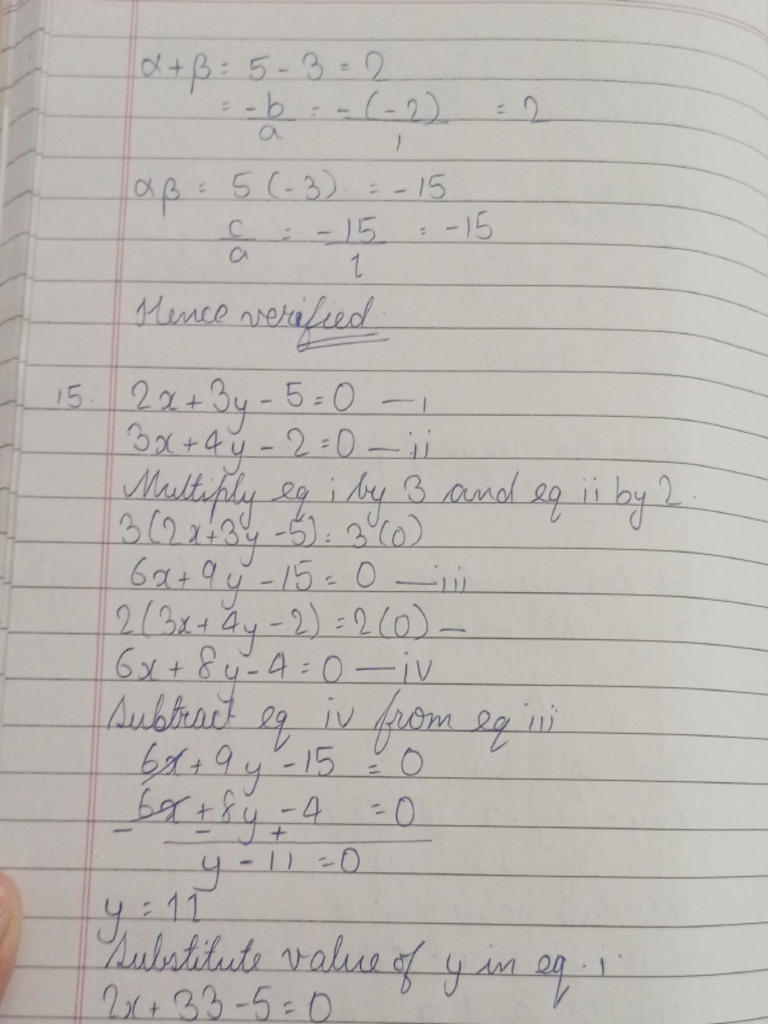 α+β = 5 - 3 = 2
= -b/a = -(-2)/1 = 2
αβ = 5(-3) = -15
c/a = -15/1 = -15
Hence verified
15. 2x+3y-5=0 — i
3x+4y-2=0 — ii
Multiply eq i by 3 and eq ii by 2.
3(2x+3y-5)=3(0)
6x+9y-15=0 — iii
2(3x+4y-2)=2(0) —
6x+8y-4=0 — iv
Subtract eq iv from eq iii
6x+9y-15=0
6x+8y-4=0
- - +
y-11=0
y=11
Substitute value of y in eq. i
2x+33-5=0